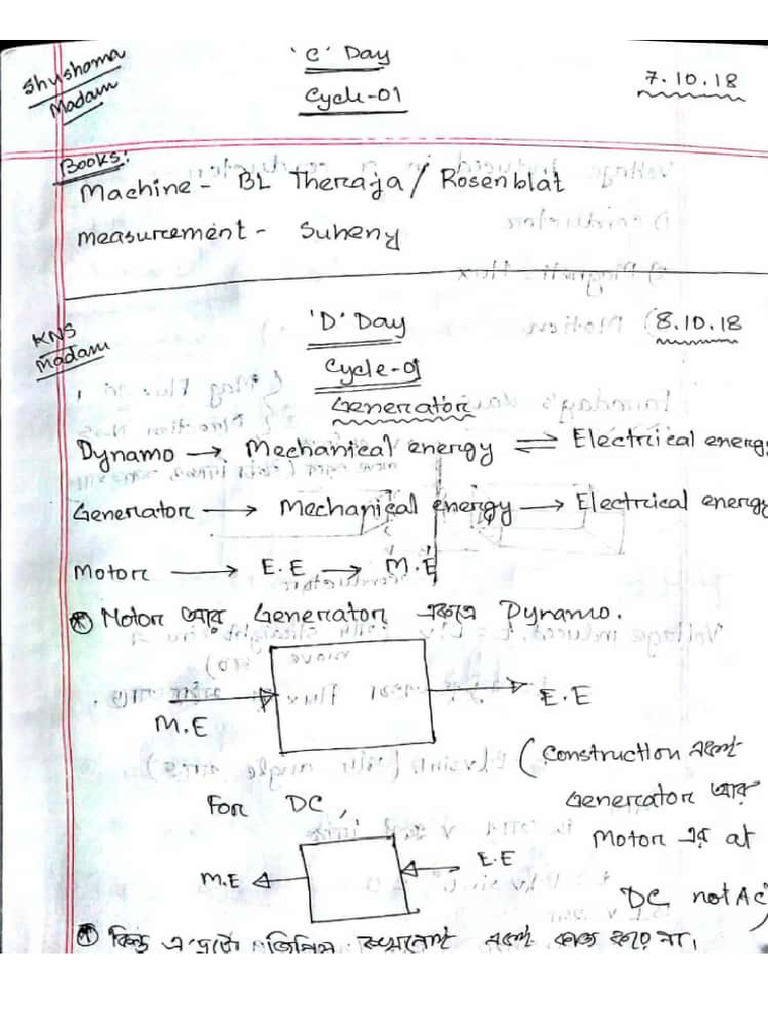 Shushoma
Madam
'C' Day
Cycle-01
7.10.18
Books:
Machine - BL Theraja / Rosenblat
measurement - Suheny
KNS
Madam
'D' Day
8.10.18
Cycle-01
Generator
Dynamo → Mechanical energy ⇌ Electrical energy
Generator → Mechanical energy → Electrical energy
Motor → E.E → M.E
* Motor আর Generator একত্রে Dynamo.
M.E
E.E
(Construction একই
Generator আর
Motor এর at
DC not Ac)
For DC,
M.E
E.E
* কিন্তু এ দুটো জিনিস কখনোই একই কাজ করে না।